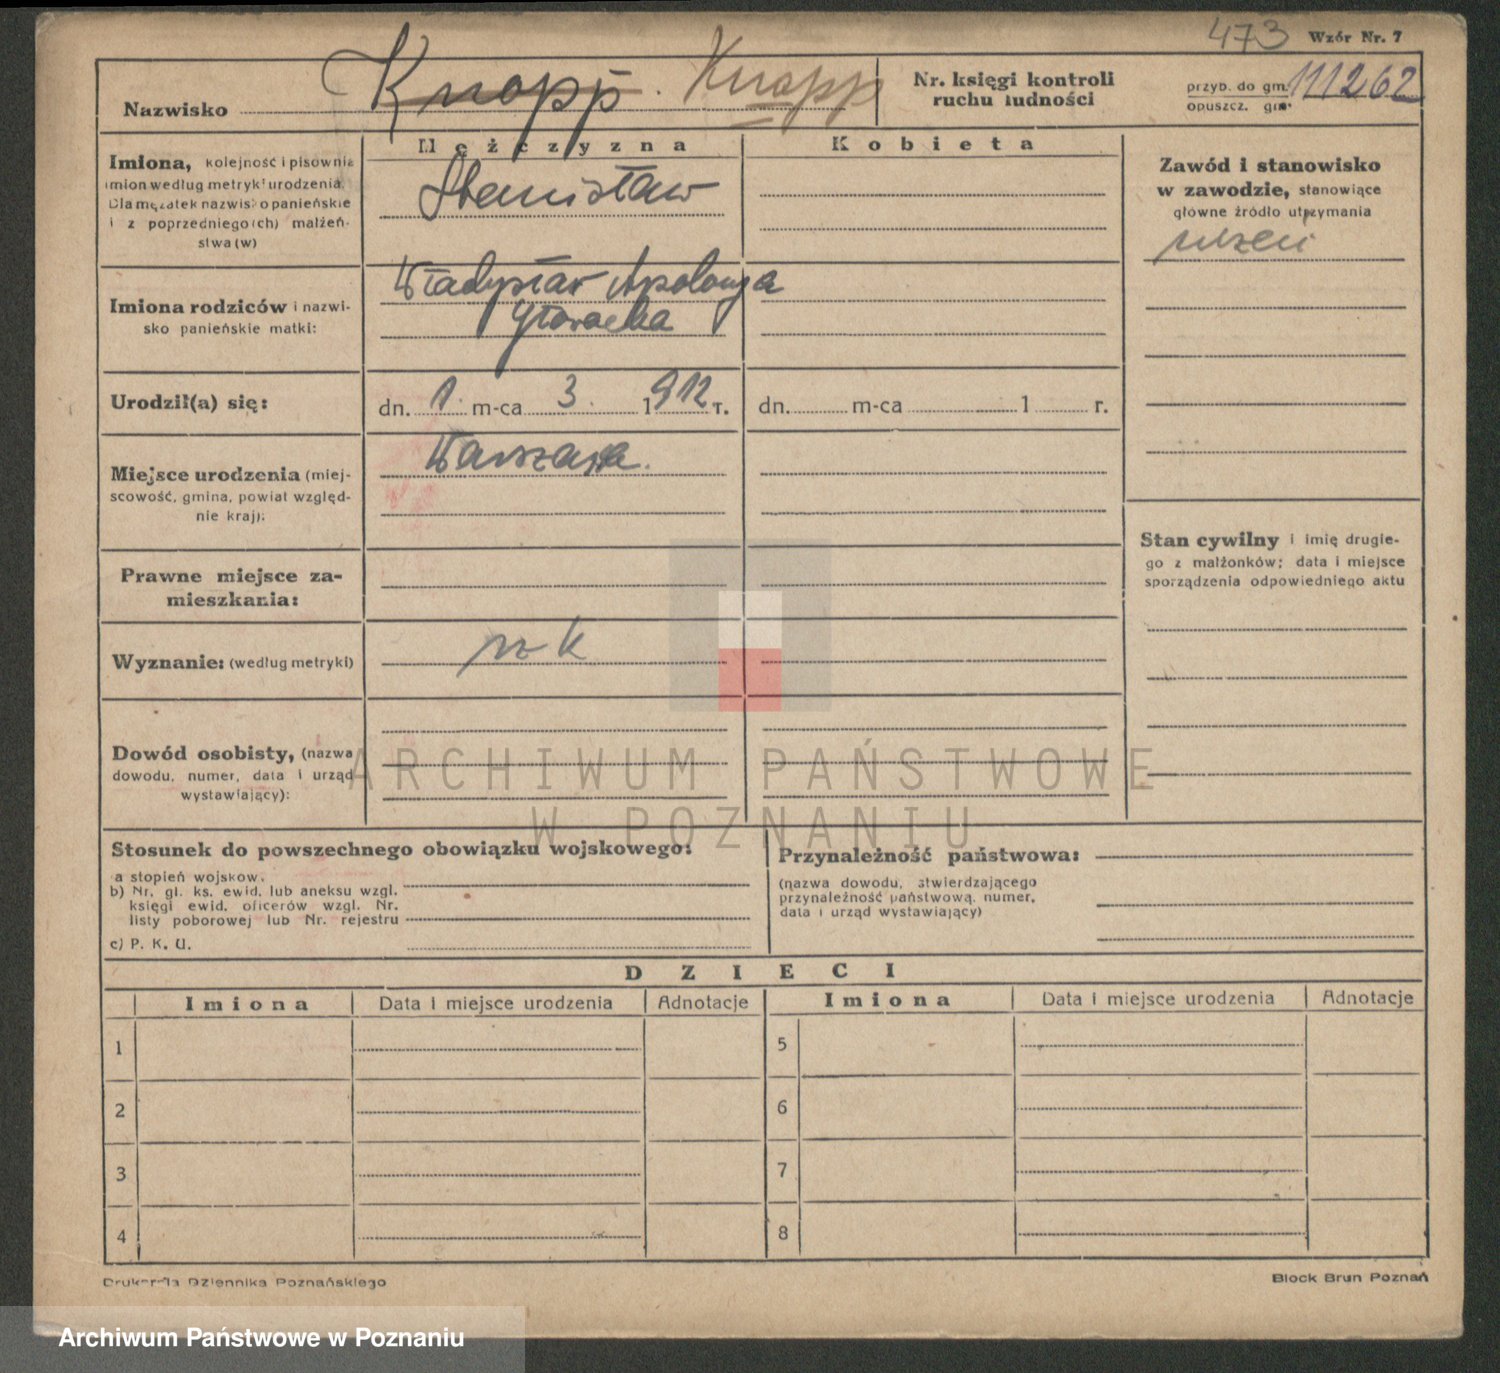 473 Wzór Nr. 7
Nazwisko Knopp. Knapp
Nr. księgi kontroli
ruchu ludności
przyb. do gm. 111262
opuszcz. gm.
Mężczyzna
Kobieta
Imiona, kolejność i pisownia
imion według metryki urodzenia.
Dla mężatek nazwisko panieńskie
i z poprzedniego(ch) małżeń-
stwa(w)
Stanisław
Zawód i stanowisko
w zawodzie, stanowiące
główne źródło utrzymania
uczeń
Imiona rodziców i nazwi-
sko panieńskie matki:
Władysław Apolonja
Głowacka
Urodził(a) się:
dn. 1. m-ca 3. 1912 r.
dn. m-ca 1 r.
Miejsce urodzenia (miej-
scowość, gmina, powiat względ-
nie kraj):
Warszawa.
Stan cywilny i imię drugie-
go z małżonków; data i miejsce
sporządzenia odpowiedniego aktu
Prawne miejsce za-
mieszkania:
Wyznanie: (według metryki)
rz k
Dowód osobisty, (nazwa
dowodu, numer, data i urząd
wystawiający):
ARCHIWUM PAŃSTWOWE
W POZNANIU
Stosunek do powszechnego obowiązku wojskowego:
a stopień wojskow.
b) Nr. gl. ks. ewid. lub aneksu wzgl.
księgi ewid. oficerów wzgl. Nr.
listy poborowej lub Nr. rejestru
c) P. K. U.
Przynależność państwowa:
(nazwa dowodu, stwierdzającego
przynależność państwową, numer,
data i urząd wystawiający)
DZIECI
Imiona Data i miejsce urodzenia Adnotacje Imiona Data i miejsce urodzenia Adnotacje
1 5
2 6
3 7
4 8
Drukarnia Dziennika Poznańskiego
Block Brun Poznań
Archiwum Państwowe w Poznaniu